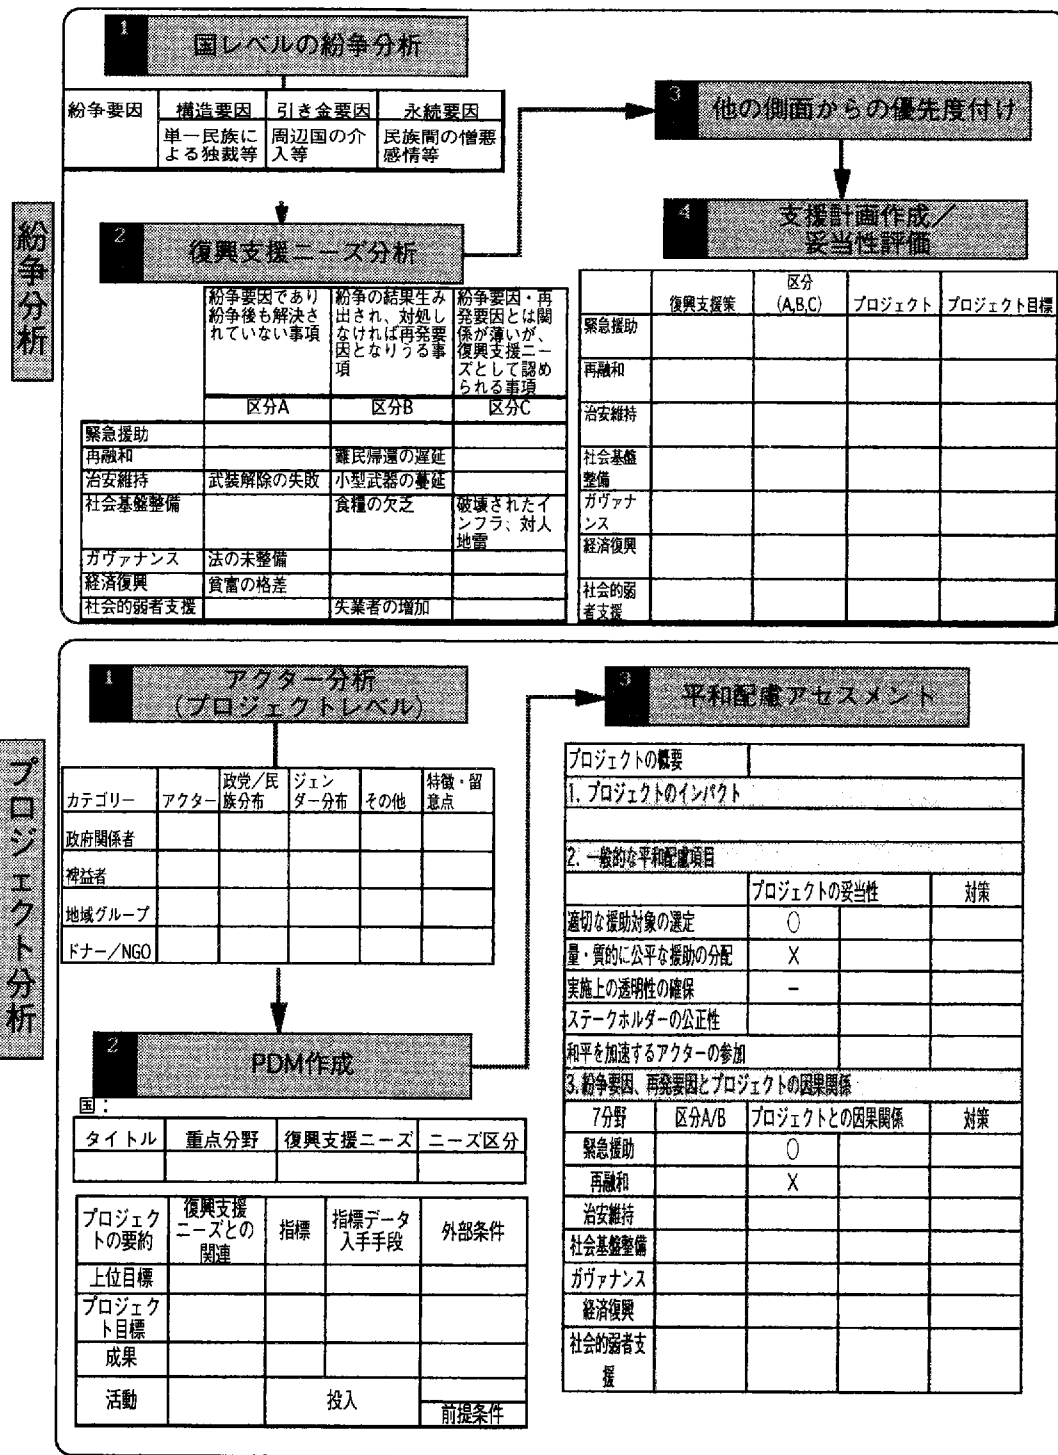 紛争分析
1
国レベルの紛争分析
紛争要因 構造要因 引き金要因 永続要因
単一民族に 周辺国の介 民族間の憎悪
よる独裁等 入等 感情等
2
復興支援ニーズ分析
紛争要因であり
紛争後も解決さ
れていない事項
紛争の結果生み
出され、対処し
なければ再発要
因となりうる事
項
紛争要因・再
発要因とは関
係が薄いが、
復興支援ニー
ズとして認め
られる事項
区分A 区分B 区分C
緊急援助
再融和 難民帰還の遅延
治安維持 武装解除の失敗 小型武器の蔓延
社会基盤整備 食糧の欠乏 破壊されたイ
ンフラ、対人
地雷
ガヴァナンス 法の未整備
経済復興 貧富の格差
社会的弱者支援 失業者の増加
3
他の側面からの優先度付け
4
支援計画作成/
妥当性評価
復興支援策 区分 プロジェクト プロジェクト目標
(A,B,C)
緊急援助
再融和
治安維持
社会基盤
整備
ガヴァナ
ンス
経済復興
社会的弱
者支援
プロジェクト分析
1
アクター分析
(プロジェクトレベル)
カテゴリー アクター 政党/民 ジェン その他 特徴・留
族分布 ダー分布 意点
政府関係者
裨益者
地域グループ
ドナー/NGO
2
PDM作成
国:
タイトル 重点分野 復興支援ニーズ ニーズ区分
プロジェク 復興支援 指標 指標データ 外部条件
トの要約 ニーズとの 入手手段
関連
上位目標
プロジェク
ト目標
成果
活動 投入
前提条件
3
平和配慮アセスメント
プロジェクトの概要
1. プロジェクトのインパクト
2. 一般的な平和配慮項目
プロジェクトの妥当性 対策
適切な援助対象の選定 ○
量・質的に公平な援助の分配 X
実施上の透明性の確保 −
ステークホルダーの公正性
和平を加速するアクターの参加
3. 紛争要因、再発要因とプロジェクトの因果関係
7分野 区分A/B プロジェクトとの因果関係 対策
緊急援助 ○
再融和 X
治安維持
社会基盤整備
ガヴァナンス
経済復興
社会的弱者支
援